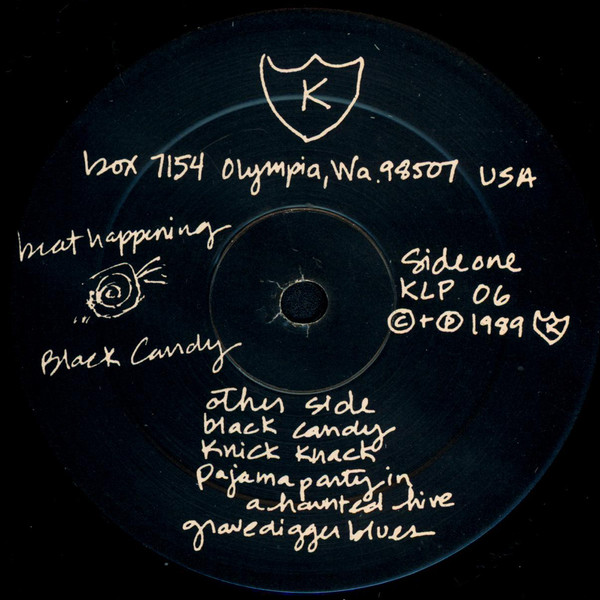 K
box 7154 Olympia, Wa. 98507 USA
beat happening
Black Candy
Side one
KLP 06
© + ℗ 1989 K
other side
black candy
knick knack
pajama party in
a haunted hive
gravedigger blues